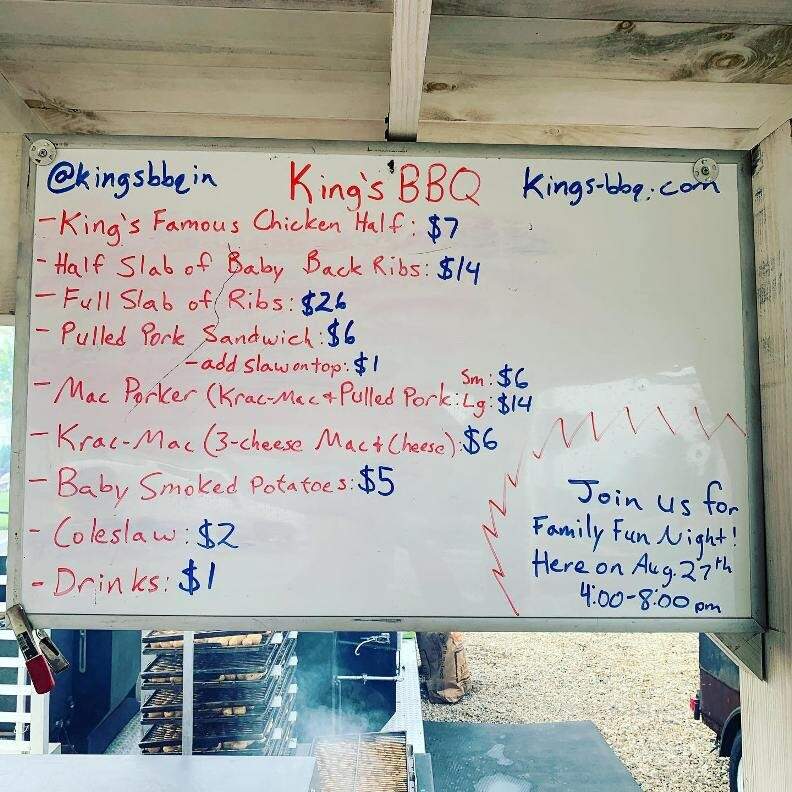 @kingsbbqin King's BBQ Kings-bbq.com
- King's Famous Chicken Half: $7
- Half Slab of Baby Back Ribs: $14
- Full Slab of Ribs: $26
- Pulled Pork Sandwich: $6
- add slaw on top: $1
Sm: $6
- Mac Porker (Krac-Mac + Pulled Pork: Lg: $14
- Krac-Mac (3-cheese Mac & Cheese): $6
- Baby Smoked Potatoes: $5
- Coleslaw: $2
- Drinks: $1
Join us for
Family Fun Night!
Here on Aug. 27th
4:00-8:00 pm